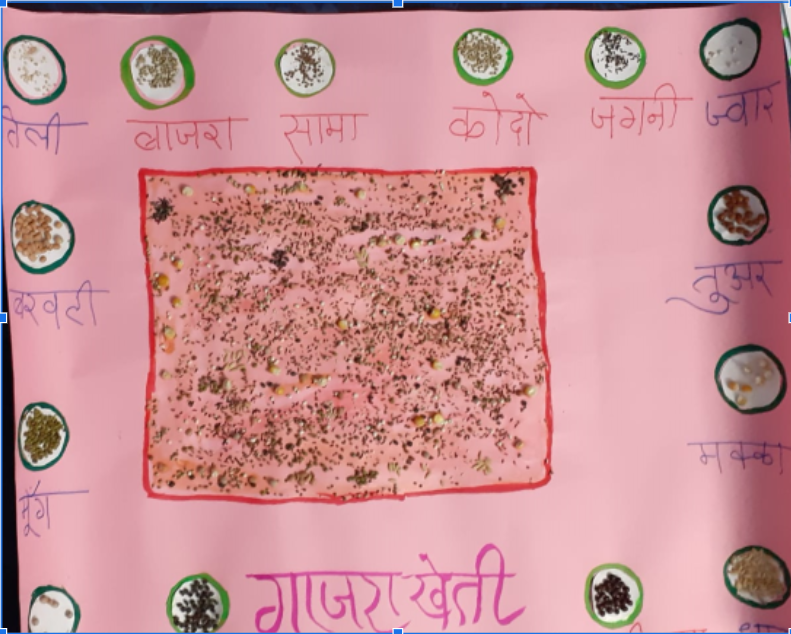 तिली बाजरा सामा कोदो जगनी ज्वार
बरवटी तुअर
मूँग मक्का
गाजरा खेती